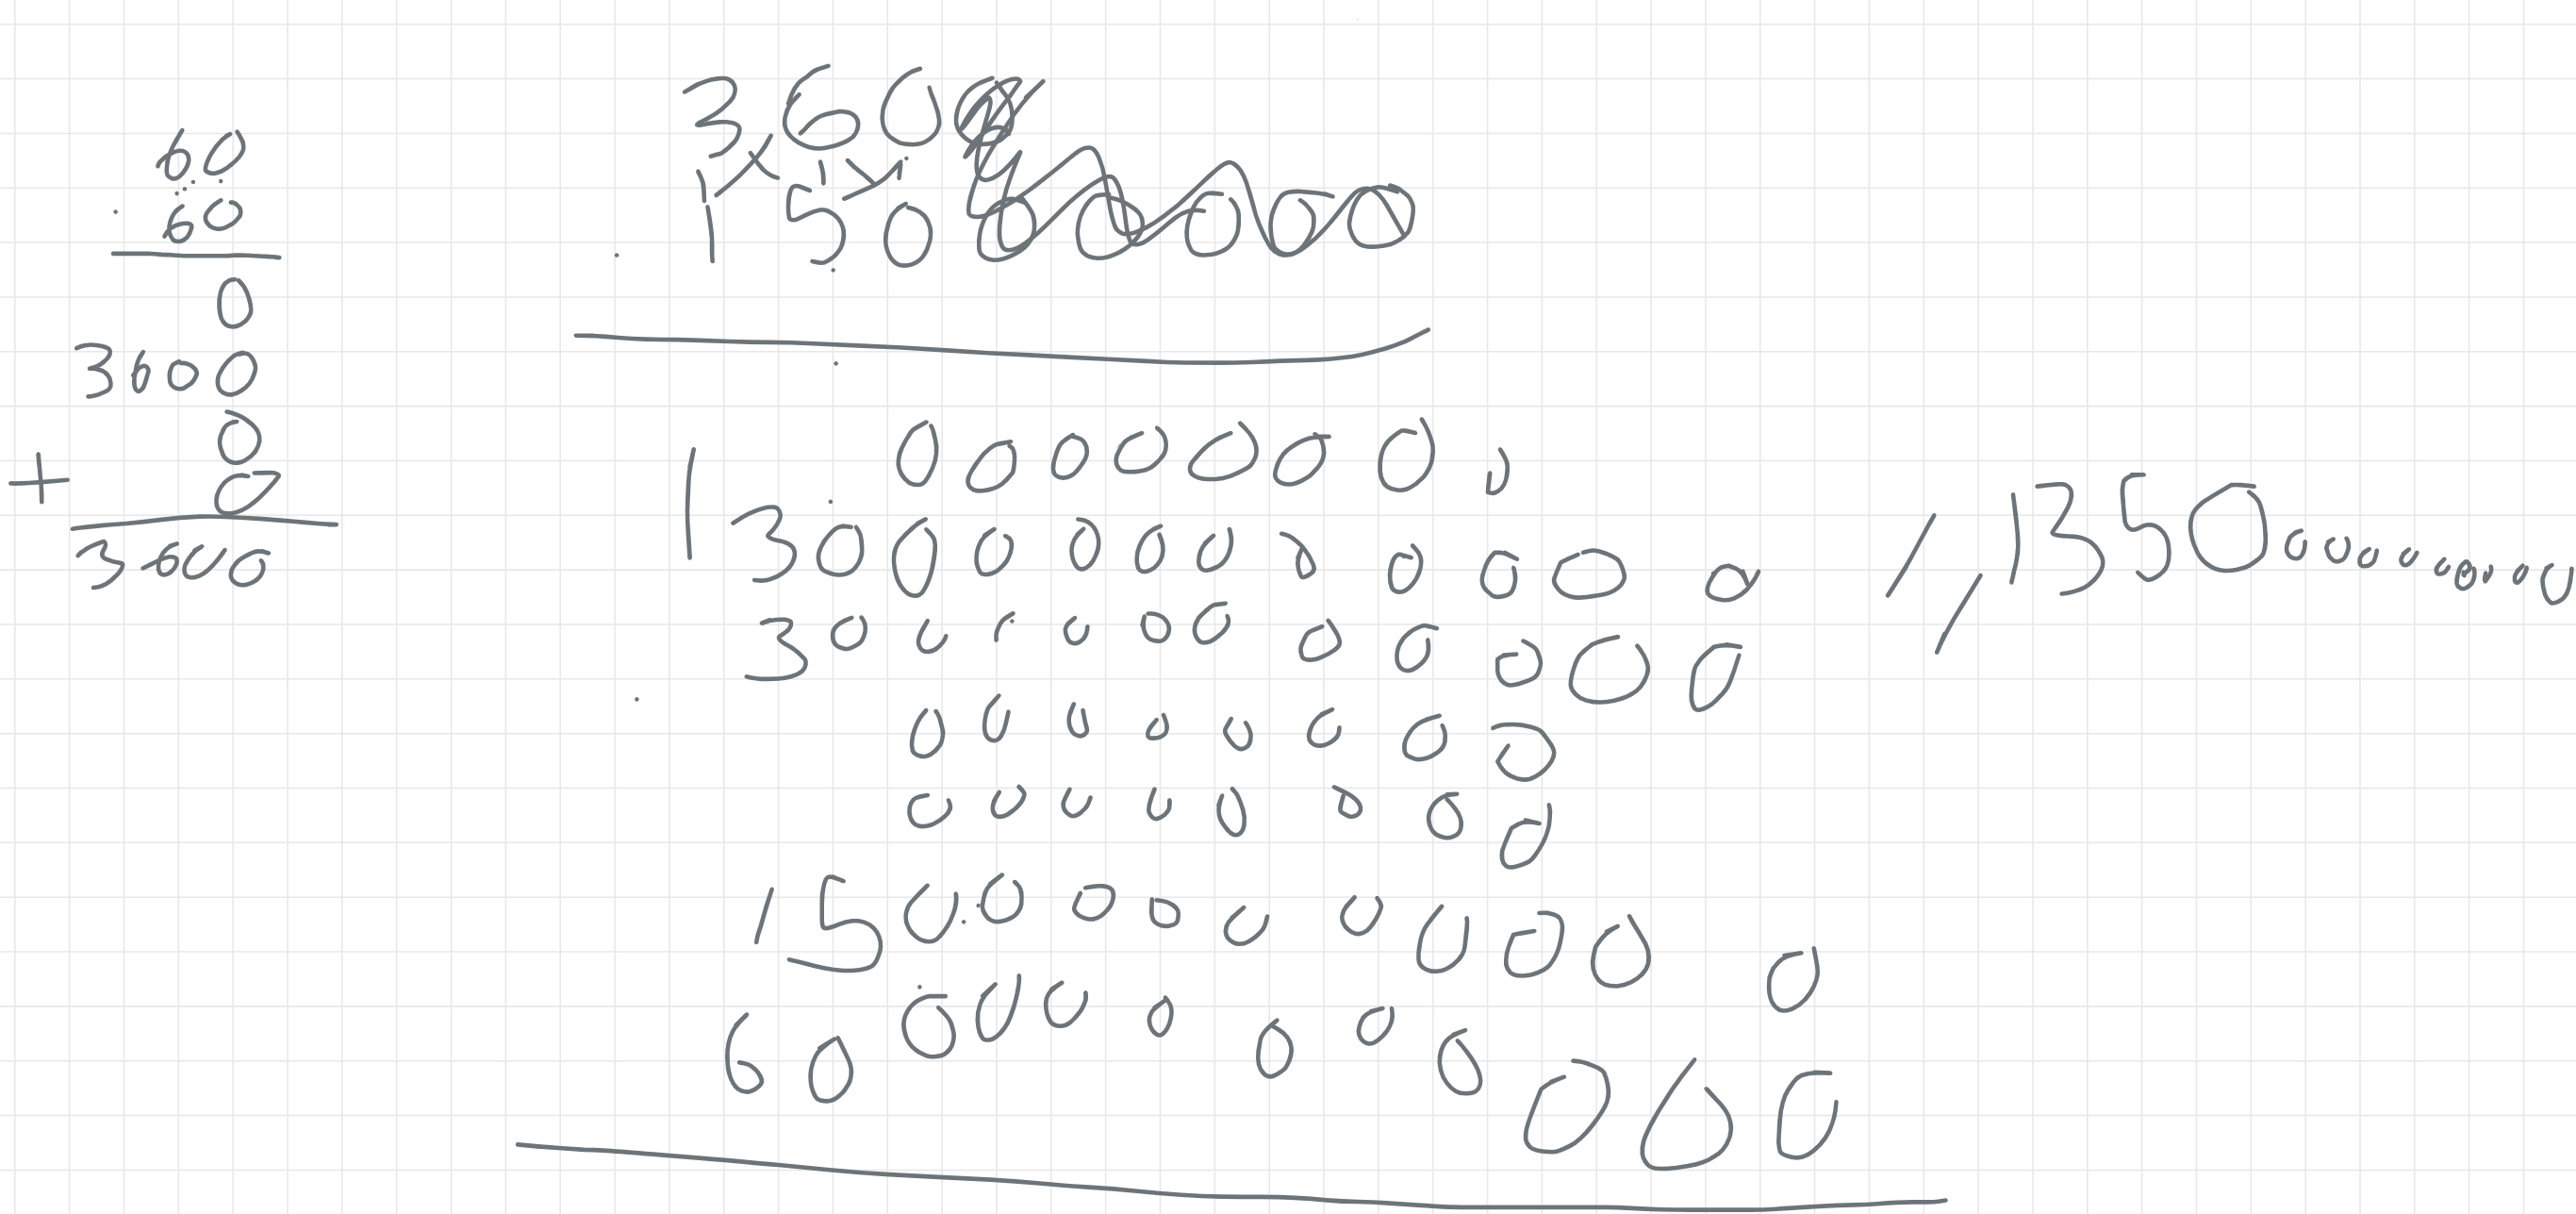 60
60
0
3600
0
+ 0
3600
360
150 00000
0000000,
1 30000000000
30000000000
00000000
00000000
150000000000
600000000000
// 1350